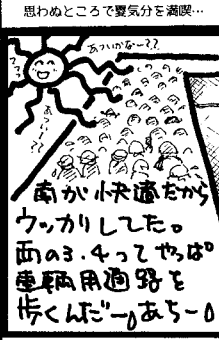 思わぬところで夏気分を満喫…
あついかな〜??
あぢぃ〜!!
南が快適だから
ウッカリしてた。
西の3.4ってやっぱ
車輌用通路を
歩くんだー。あちー。